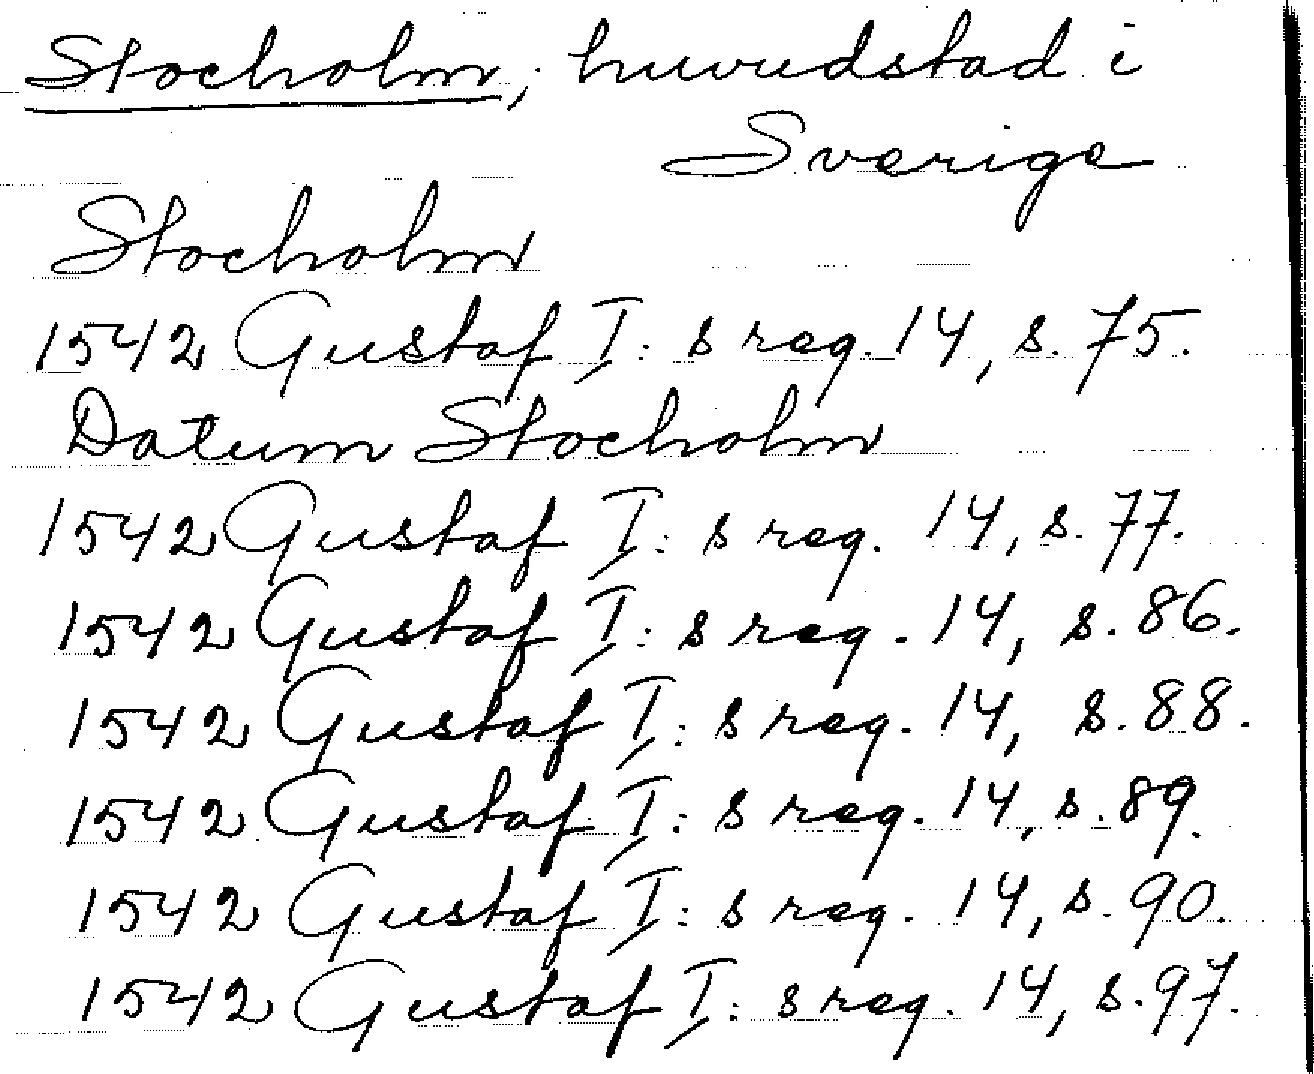 Stocholm, huvudstad i
Sverige
Stocholm
1542 Gustaf I: s reg. 14, s. 75.
Datum Stocholm
1542 Gustaf I: s reg. 14, s. 77.
1542 Gustaf I: s reg. 14, s. 86.
1542 Gustaf I: s reg. 14, s. 88.
1542 Gustaf I: s reg. 14, s. 89.
1542 Gustaf I: s reg. 14, s. 90.
1542 Gustaf I: s reg. 14, s. 97.